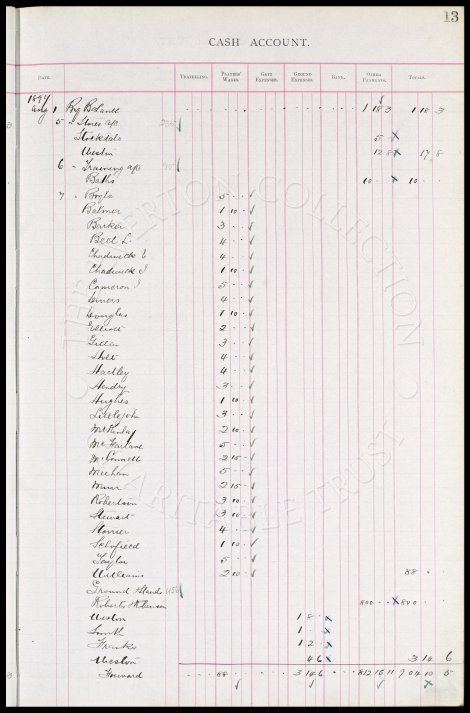 13
CASH ACCOUNT.
DATE. TRAVELLING. PLAYERS' WAGES GATE EXPENSES. GROUND EXPENSES BANK. OTHER PAYMENTS. TOTALS.
1897
Aug 1 By Balance 1 18 3 1 18 3
5 " Stores a/c
Stockdale 5
Weston 12 8 17 8
6 " Training a/c
Baths 10 10
7 " Boyle 5
Balmer 1 10
Barker 3
Bell L. 4
Chadwick E 4
Chadwick J 1 10
Cameron J 5
Divers 4
Douglas 1 10
Elliott 2
Gillan 3
Holt 4
Hartley 4
Hendry 3
Hughes 1 10
Littlejohn 3
McKinlay 2 10
McFarlane 5
McConnell 2 15
Meehan 5
Muir 2 15
Robertson 3 10
Stewart 3 10
Storrier 4
Schofield 1 10
Taylor 5
Williams 2 10 88
Ground & Stands
Roberts & Robinson 800 800
Weston 1 8
Smith 1
Franks 1 2
Weston 4 6 3 14 6
Forward 88 3 14 6 812 15 11 904 10 5
THE EVERTON COLLECTION
CHARITABLE TRUST